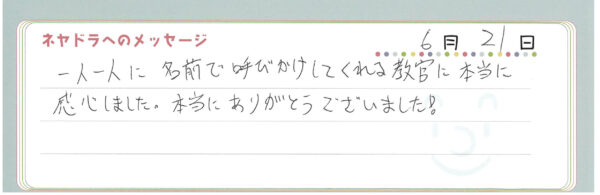 ネヤドラへのメッセージ
6月21日
一人一人に名前で呼びかけしてくれる教官に本当に
感心しました。本当にありがとうございました!